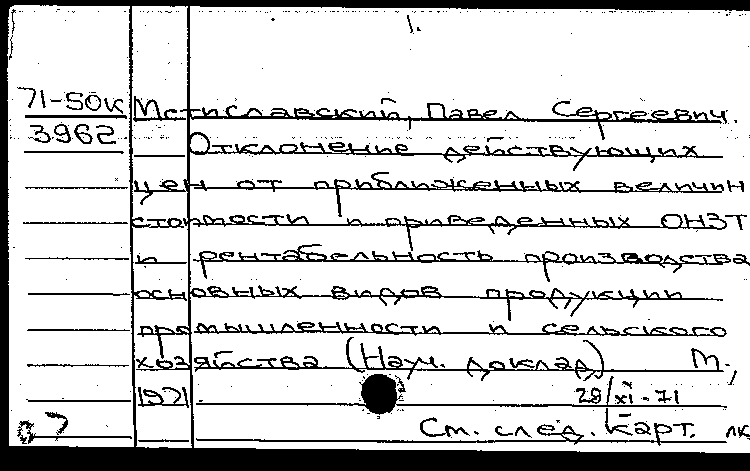 1.
71-50к Мстиславский, Павел Сергеевич.
3962 Отклонение действующих
цен от приближенных величин
стоимости и приведенных ОНЗТ
и рентабельность производства
основных видов продукции
промышленности и сельского
хозяйства (Науч. доклад). М.,
1971
28/XI-71
См. след. карт. лк